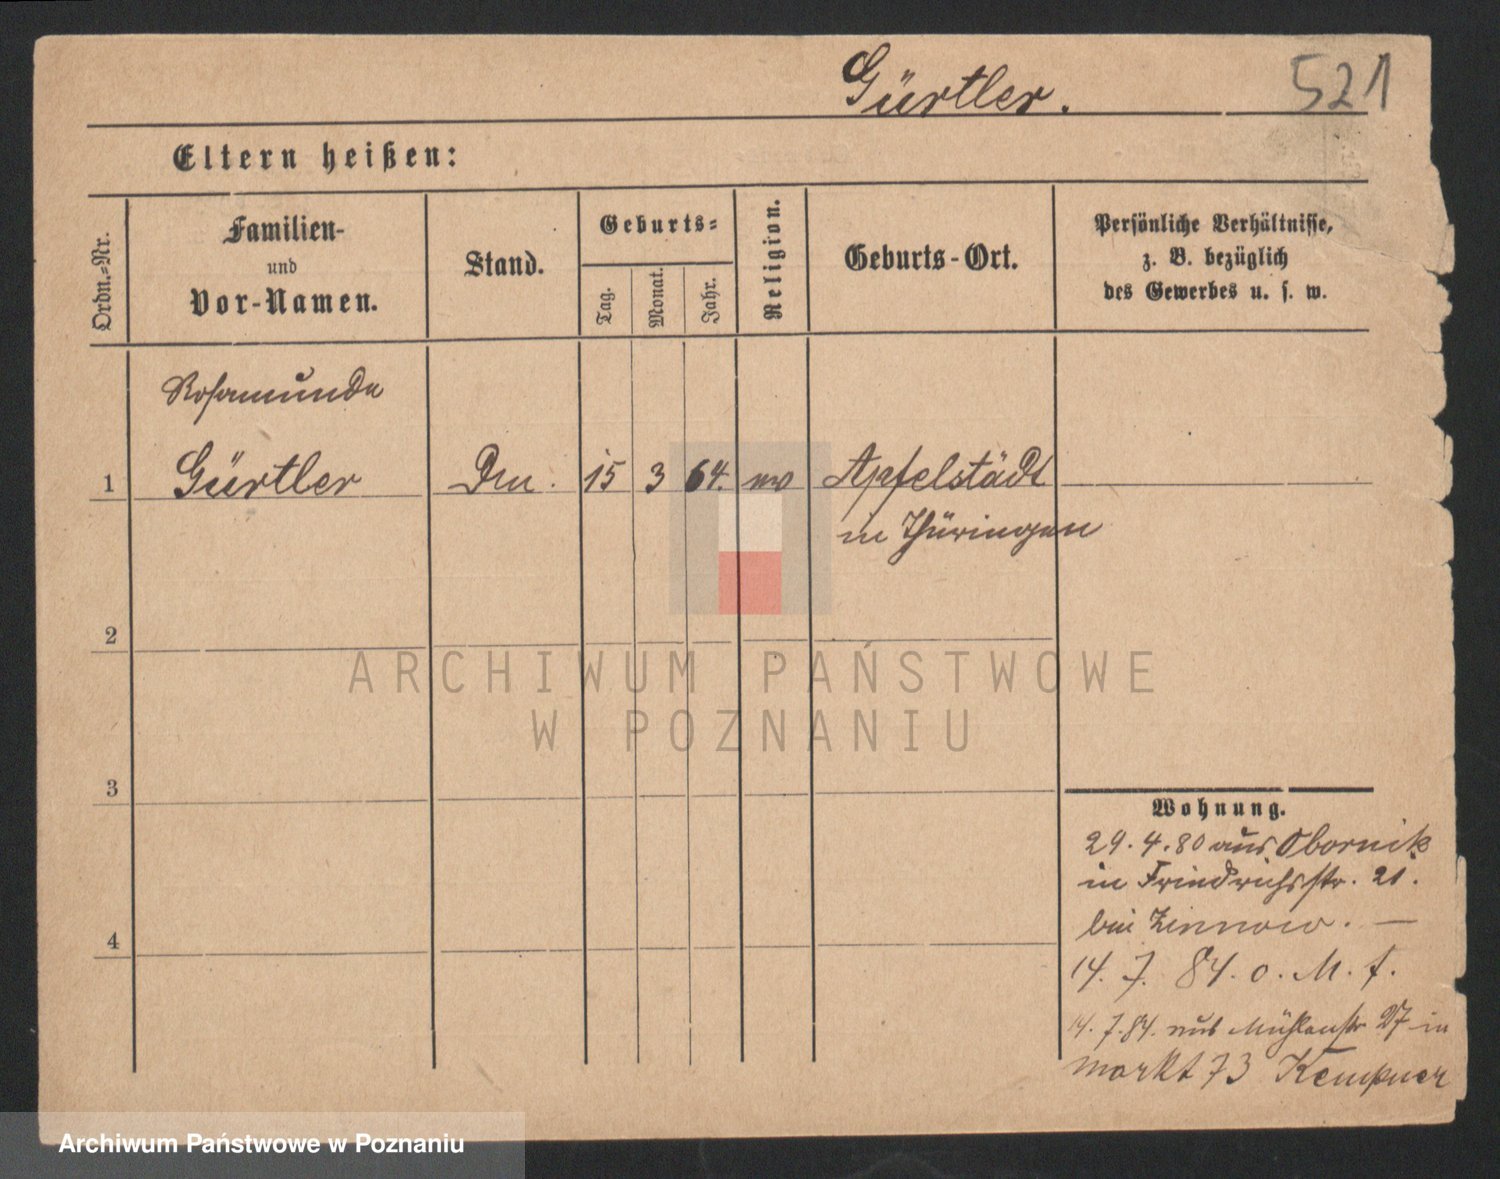 Gürtler.
521
Eltern heißen:
Ordn.-Nr.
Familien-
und
Vor-Namen.
Stand.
Geburts-
Tag.
Monat.
Jahr.
Religion.
Geburts-Ort.
Persönliche Verhältnisse,
z. B. bezüglich
des Gewerbes u. s. w.
Rosamunde
1 Gürtler 15 3 64. Apfelstädt
in Thüringen
2
3
4
Wohnung.
29.4.80 aus Obornik
in Friedrichsstr. 21.
bei Zinnow. —
14. 7. 84. o. M. f.
14.7.84. aus Mühlenstr 27 in
Markt 73 Kempner
ARCHIWUM PAŃSTWOWE
W POZNANIU
Archiwum Państwowe w Poznaniu